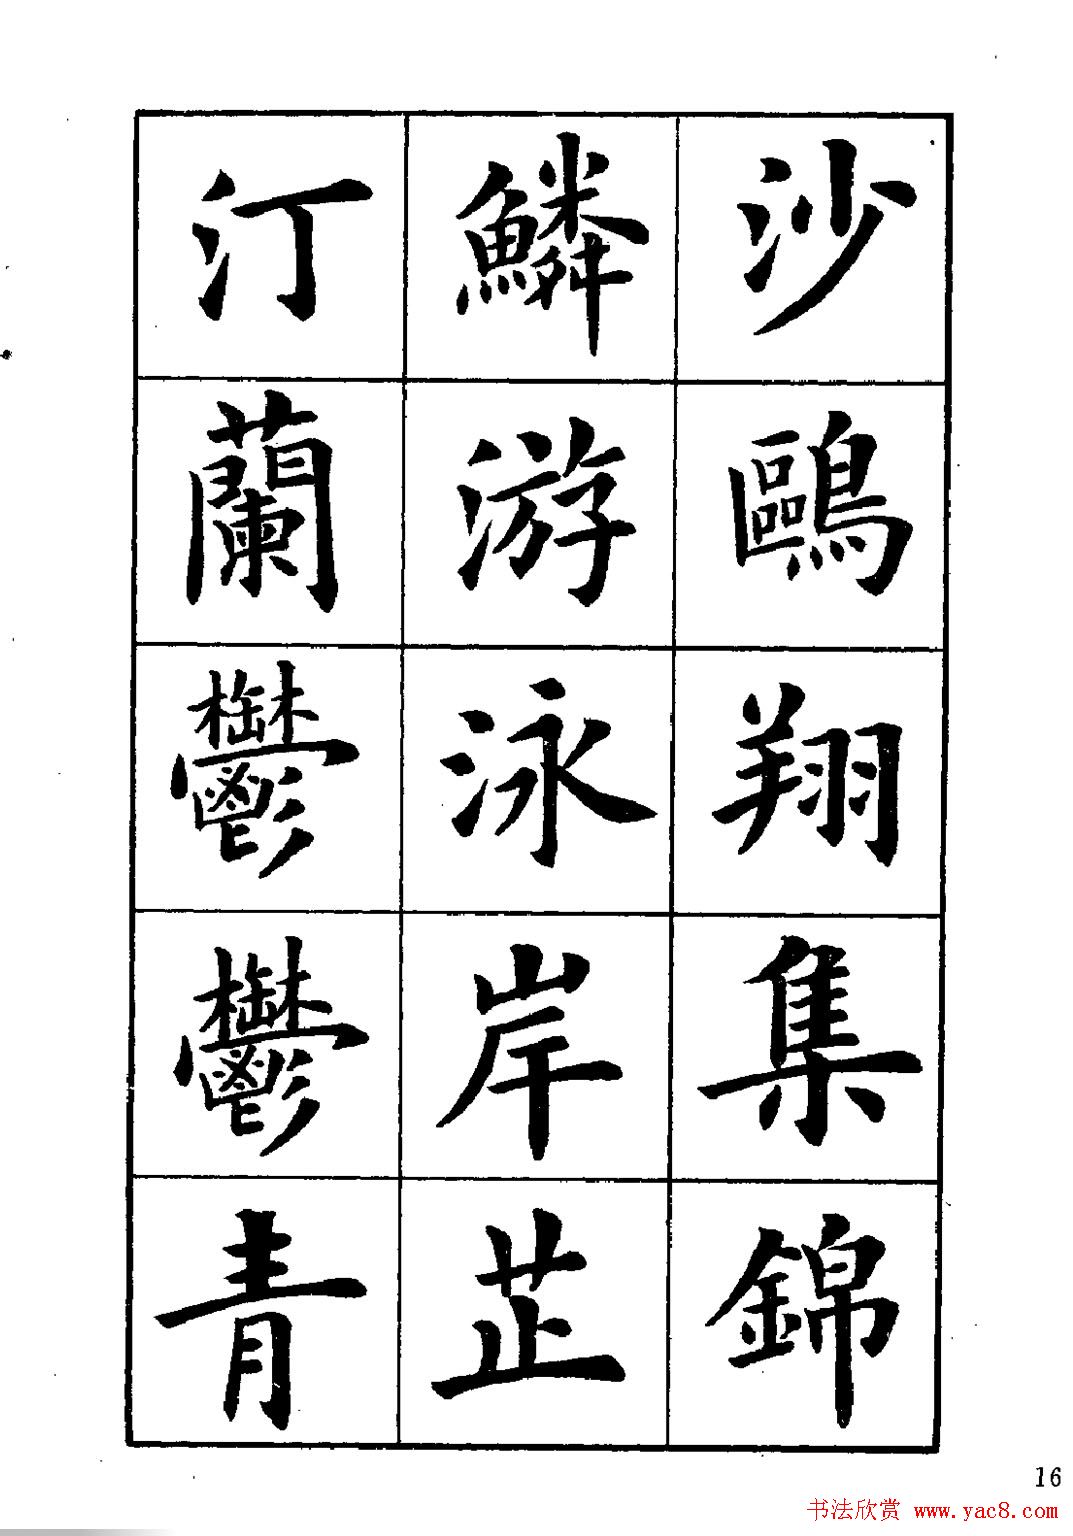 沙鷗翔集錦
鱗游泳岸芷
汀蘭鬱鬱青
16
书法欣赏 www.yac8.com